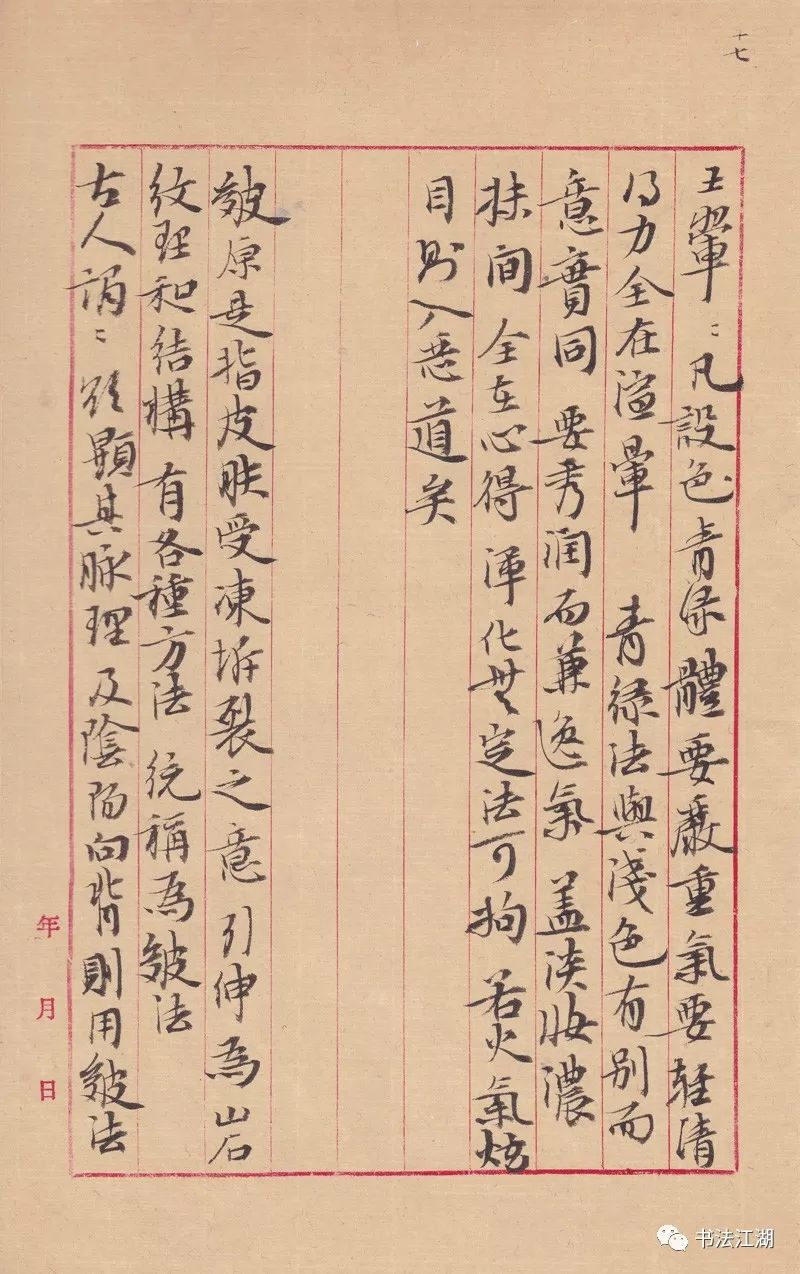 十七
王翬：凡設色青綠體要嚴重氣要輕清
得力全在渲暈 青綠法與淺色有別而
意實同 要秀潤而兼逸氣 蓋淡妝濃
抹間 全在心得 渾化無定法可拘 若火氣炫
目則入惡道矣
皴原是指皮肤受凍坼裂之意 引伸為山石
紋理和結構 有各種方法 統稱為皴法
古人謂：欲顯其脈理及陰陽向背則用皴法
年 月 日
书法江湖